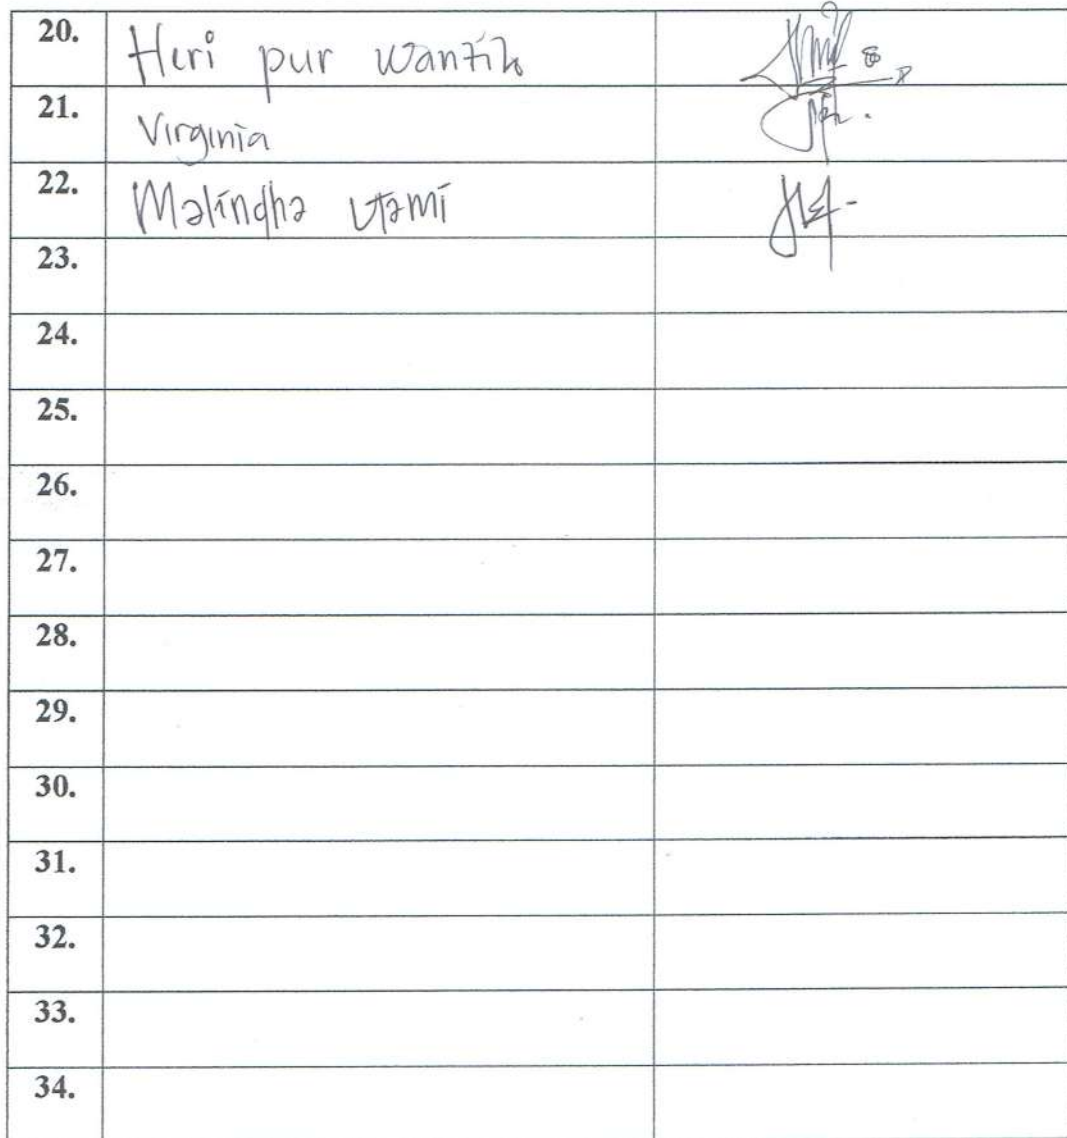 20. Heri pur wantih
21. Virginia
22. Malindha Utami
23.
24.
25.
26.
27.
28.
29.
30.
31.
32.
33.
34.